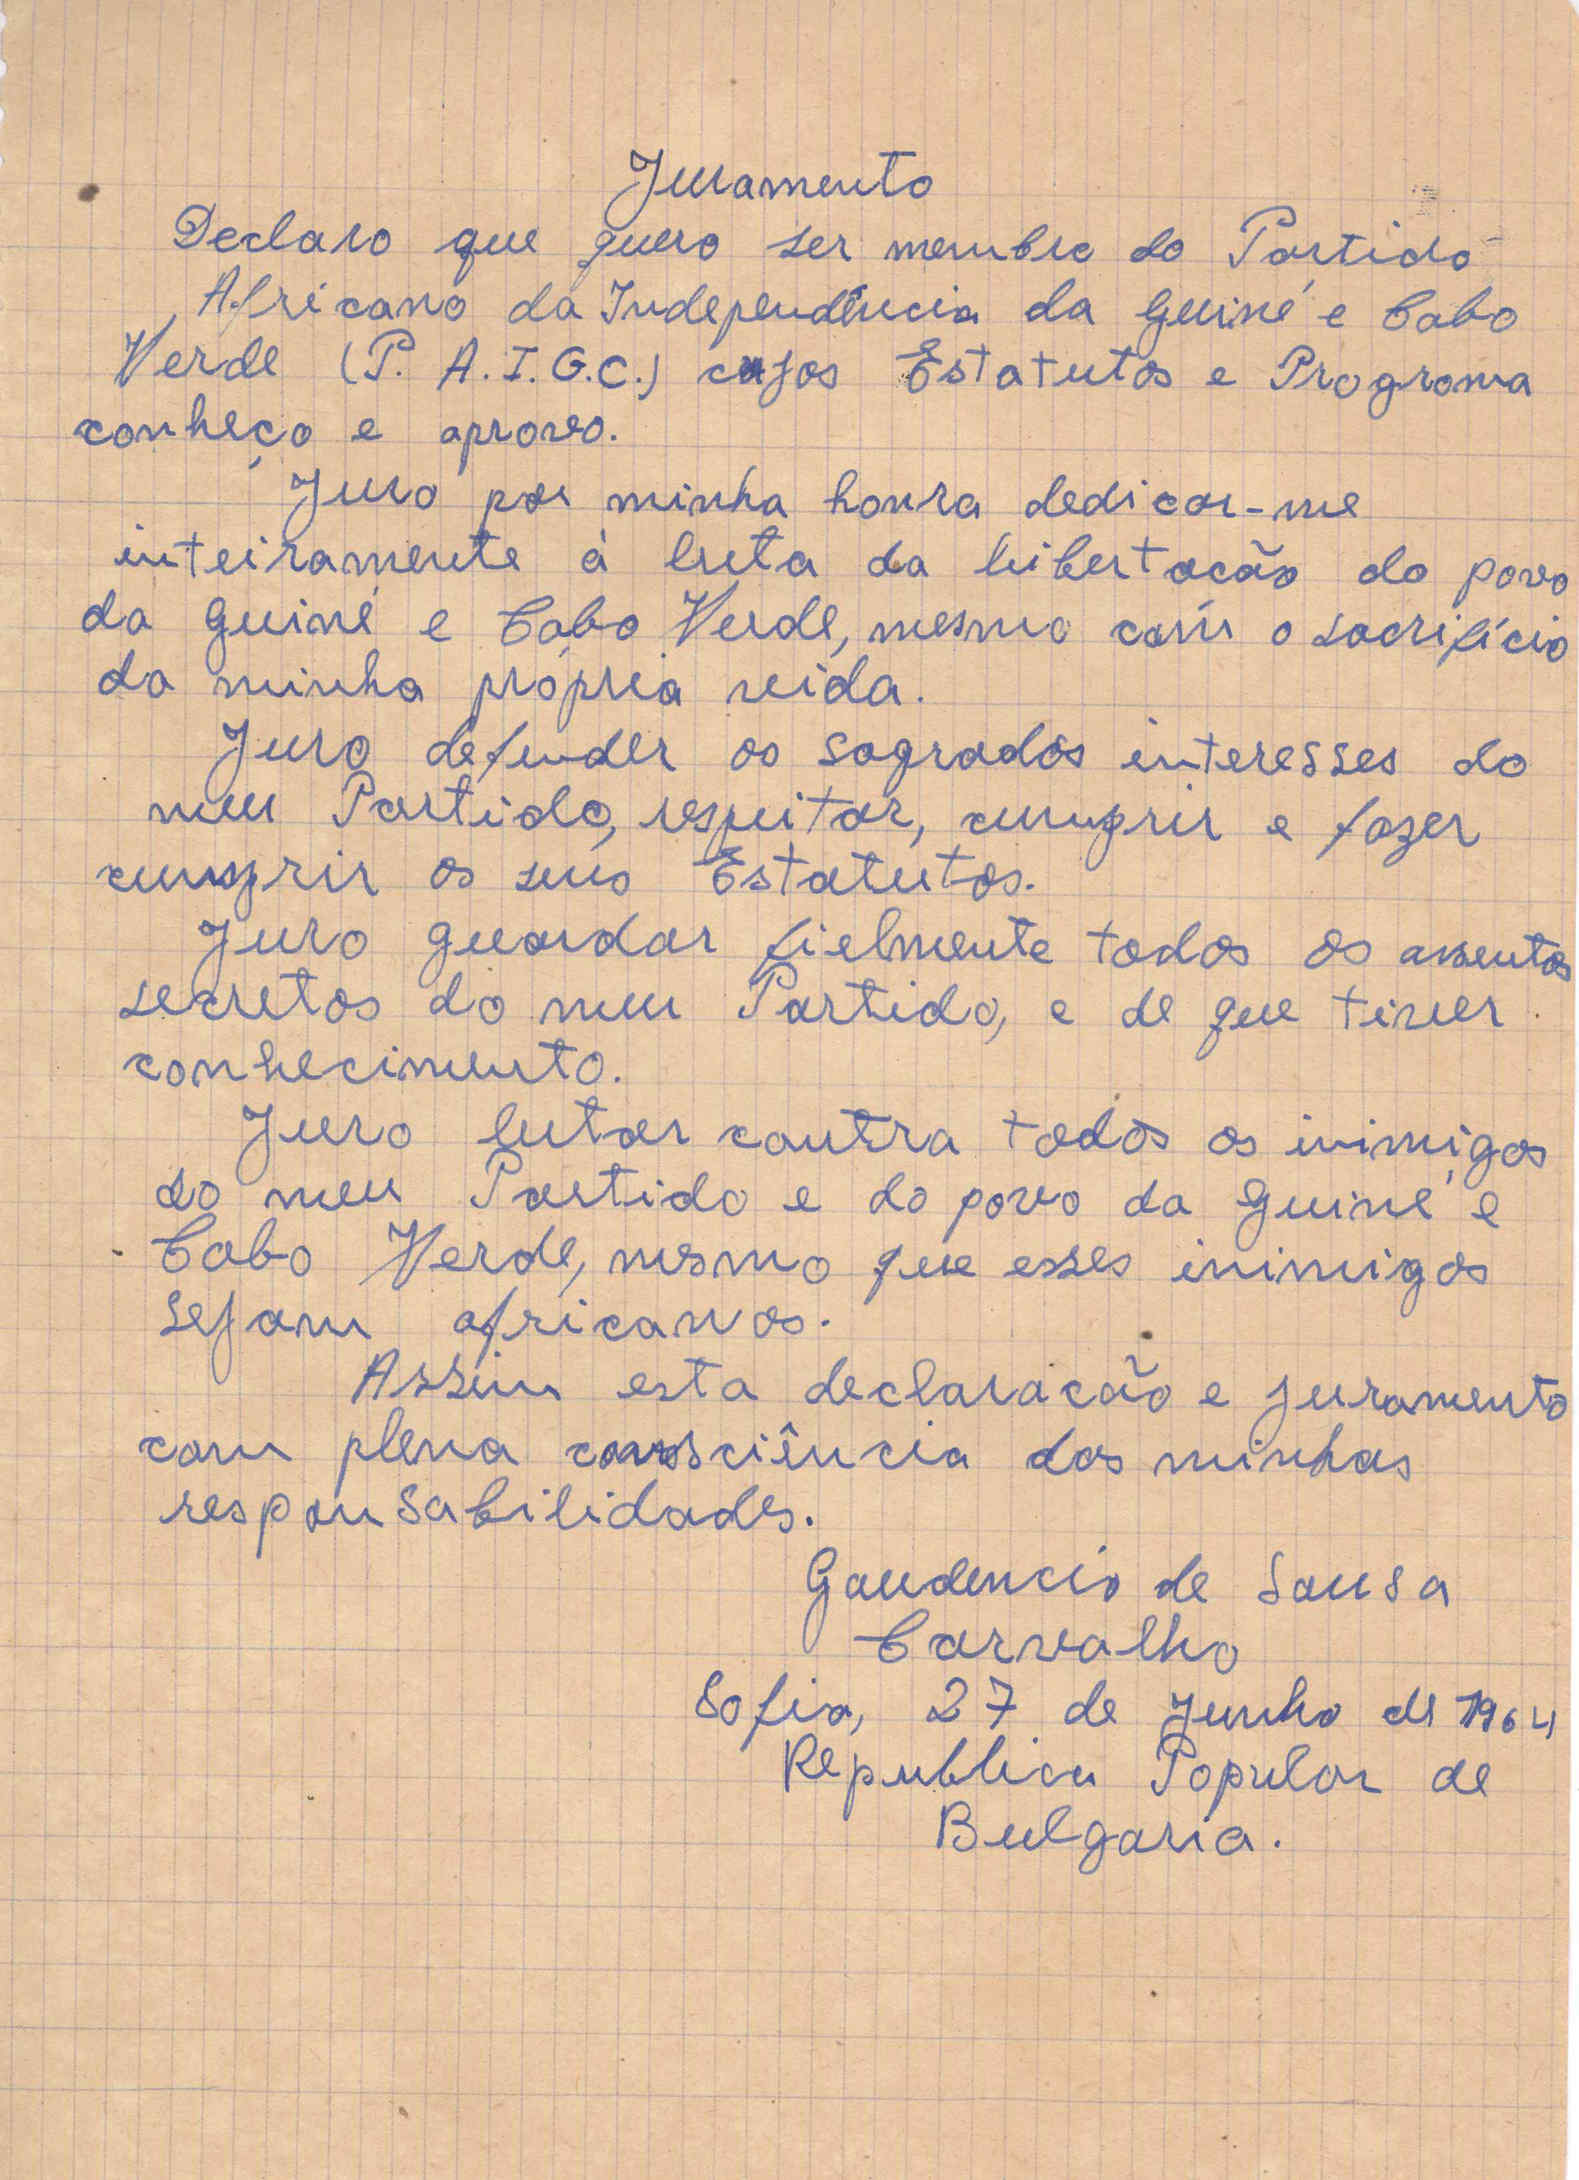 Juramento
Declaro que quero ser membro do Partido
Africano da Independência da Guiné e Cabo
Verde (P. A. I. G. C.) cujos Estatutos e Programa
conheço e aprovo.
Juro por minha honra dedicar-me
inteiramente á luta da libertacão do povo
da Guiné e Cabo Verde, mesmo com o sacrifício
da minha própria vida.
Juro defender os sagrados interesses do
meu Partido, respeitar, cumprir e fazer
cumprir os seus Estatutos.
Juro guardar fielmente todos os assentos
secretos do meu Partido, e de que tiver
conhecimento.
Juro lutar contra todos os inimigos
do meu Partido e do povo da Guiné e
Cabo Verde, mesmo que esses inimigos
sejam africanos.
Assim esta declaracão e juramento
com plena consciência das minhas
responsabilidades.
Gaudencio de Sousa
Carvalho
Sofia, 27 de Junho de 1964
Republica Popular de
Bulgaria.